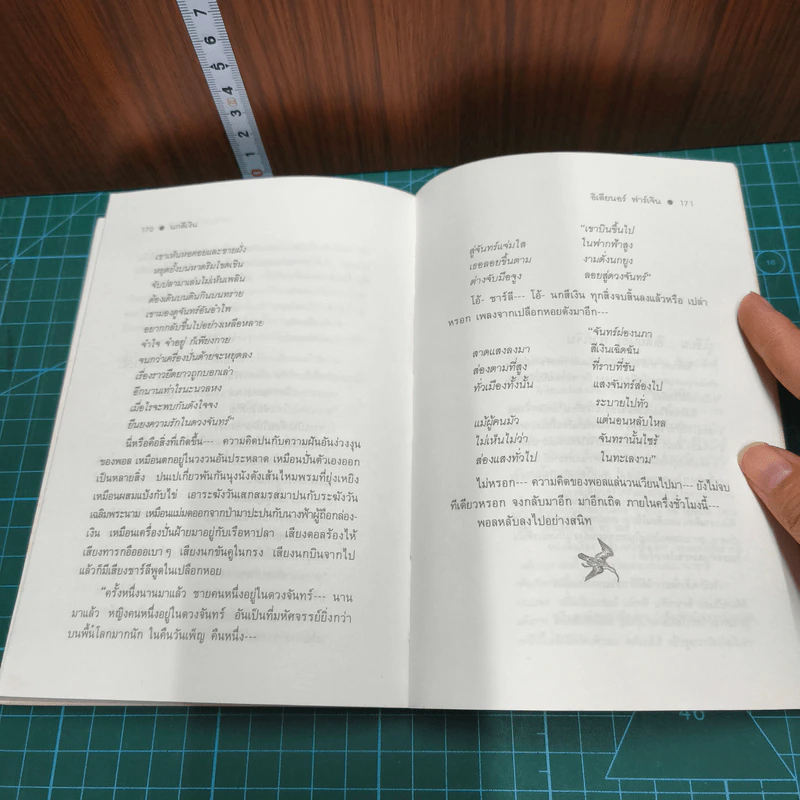 170 ● นกสีเงิน
เขาเห็นหอคอยและชายฝั่ง
หยุดยั้งบนหาดริมโขดเขิน
จับปลามาเล่นไม่เห็นเพลิน
ต้องเดินบนดินกินบนทราย
เขามองดูจันทร์อันอำไพ
อยากกลับขึ้นไปอย่างเหลือหลาย
จำใจ จำอยู่ ก็เพียงกาย
จนกว่าเครื่องปั่นด้ายจะหยุดลง
เรื่องราวยืดยาวถูกบอกเล่า
อีกนานเท่าไรนะนวลหง
เมื่อไรจะพบกันดังใจจง
ยืนยงความรักในดวงจันทร์"
นี่หรือคือสิ่งที่เกิดขึ้น--- ความคิดปนกับความฝันอันง่วงงุน
ของพอล เหมือนตกอยู่ในวงวนอันประหลาด เหมือนปั่นตัวเองออก
เป็นหลายสิ่ง ปนเปเกี่ยวพันกันนุงนังดังเส้นไหมพรมที่ยุ่งเหยิง
เหมือนผสมแป้งกับไข่ เอาระฆังวันเสกสมรสมาปนกับระฆังวัน
เฉลิมพระนาม เหมือนแม่มดออกจากป่ามาปะปนกับนางฟ้าผู้ถือกล่อง-
เงิน เหมือนเครื่องปั่นฝ้ายมาอยู่กับเรือหาปลา เสียงตอลร้องไห้
เสียงทารกอ้อออเบา ๆ เสียงนกขันคูในกรง เสียงนกบินจากไป
แล้วก็มีเสียงชาร์ลีพูดในเปลือกหอย
"ครั้งหนึ่งนานมาแล้ว ชายคนหนึ่งอยู่ในดวงจันทร์--- นาน
มาแล้ว หญิงคนหนึ่งอยู่ในดวงจันทร์ อันเป็นที่มหัศจรรย์ยิ่งกว่า
บนพื้นโลกมากนัก ในคืนวันเพ็ญ คืนหนึ่ง---
อิเลียนอร์ ฟาร์เจิน ● 171
"เขาบินขึ้นไป
สู่จันทร์แจ่มใส ในฟากฟ้าสูง
เธอลอยขึ้นตาม งามดั่งนกยูง
ต่างจับมือจูง ลอยสู่ดวงจันทร์"
โอ้- ชาร์ลี--- โอ้- นกสีเงิน ทุกสิ่งจบสิ้นลงแล้วหรือ เปล่า
หรอก เพลงจากเปลือกหอยดังมาอีก---
"จันทร์ผ่องนภา
ลาดแสงลงมา สีเงินเฉิดฉัน
ส่องตามที่สูง ที่ราบที่ชัน
ทั่วเมืองทั้งนั้น แสงจันทร์ส่องไป
ระบายไปทั่ว
แม้ผู้คนมัว แต่นอนหลับใหล
ไม่เห็นไม่ว่า จันทรานั้นไซร้
ส่องแสงทั่วไป ในทะเลงาม"
ไม่หรอก--- ความคิดของพอลแล่นวนเวียนไปมา--- ยังไม่จบ
ทีเดียวหรอก จงกลับมาอีก มาอีกเถิด ภายในครึ่งชั่วโมงนี้---
พอลหลับลงไปอย่างสนิท